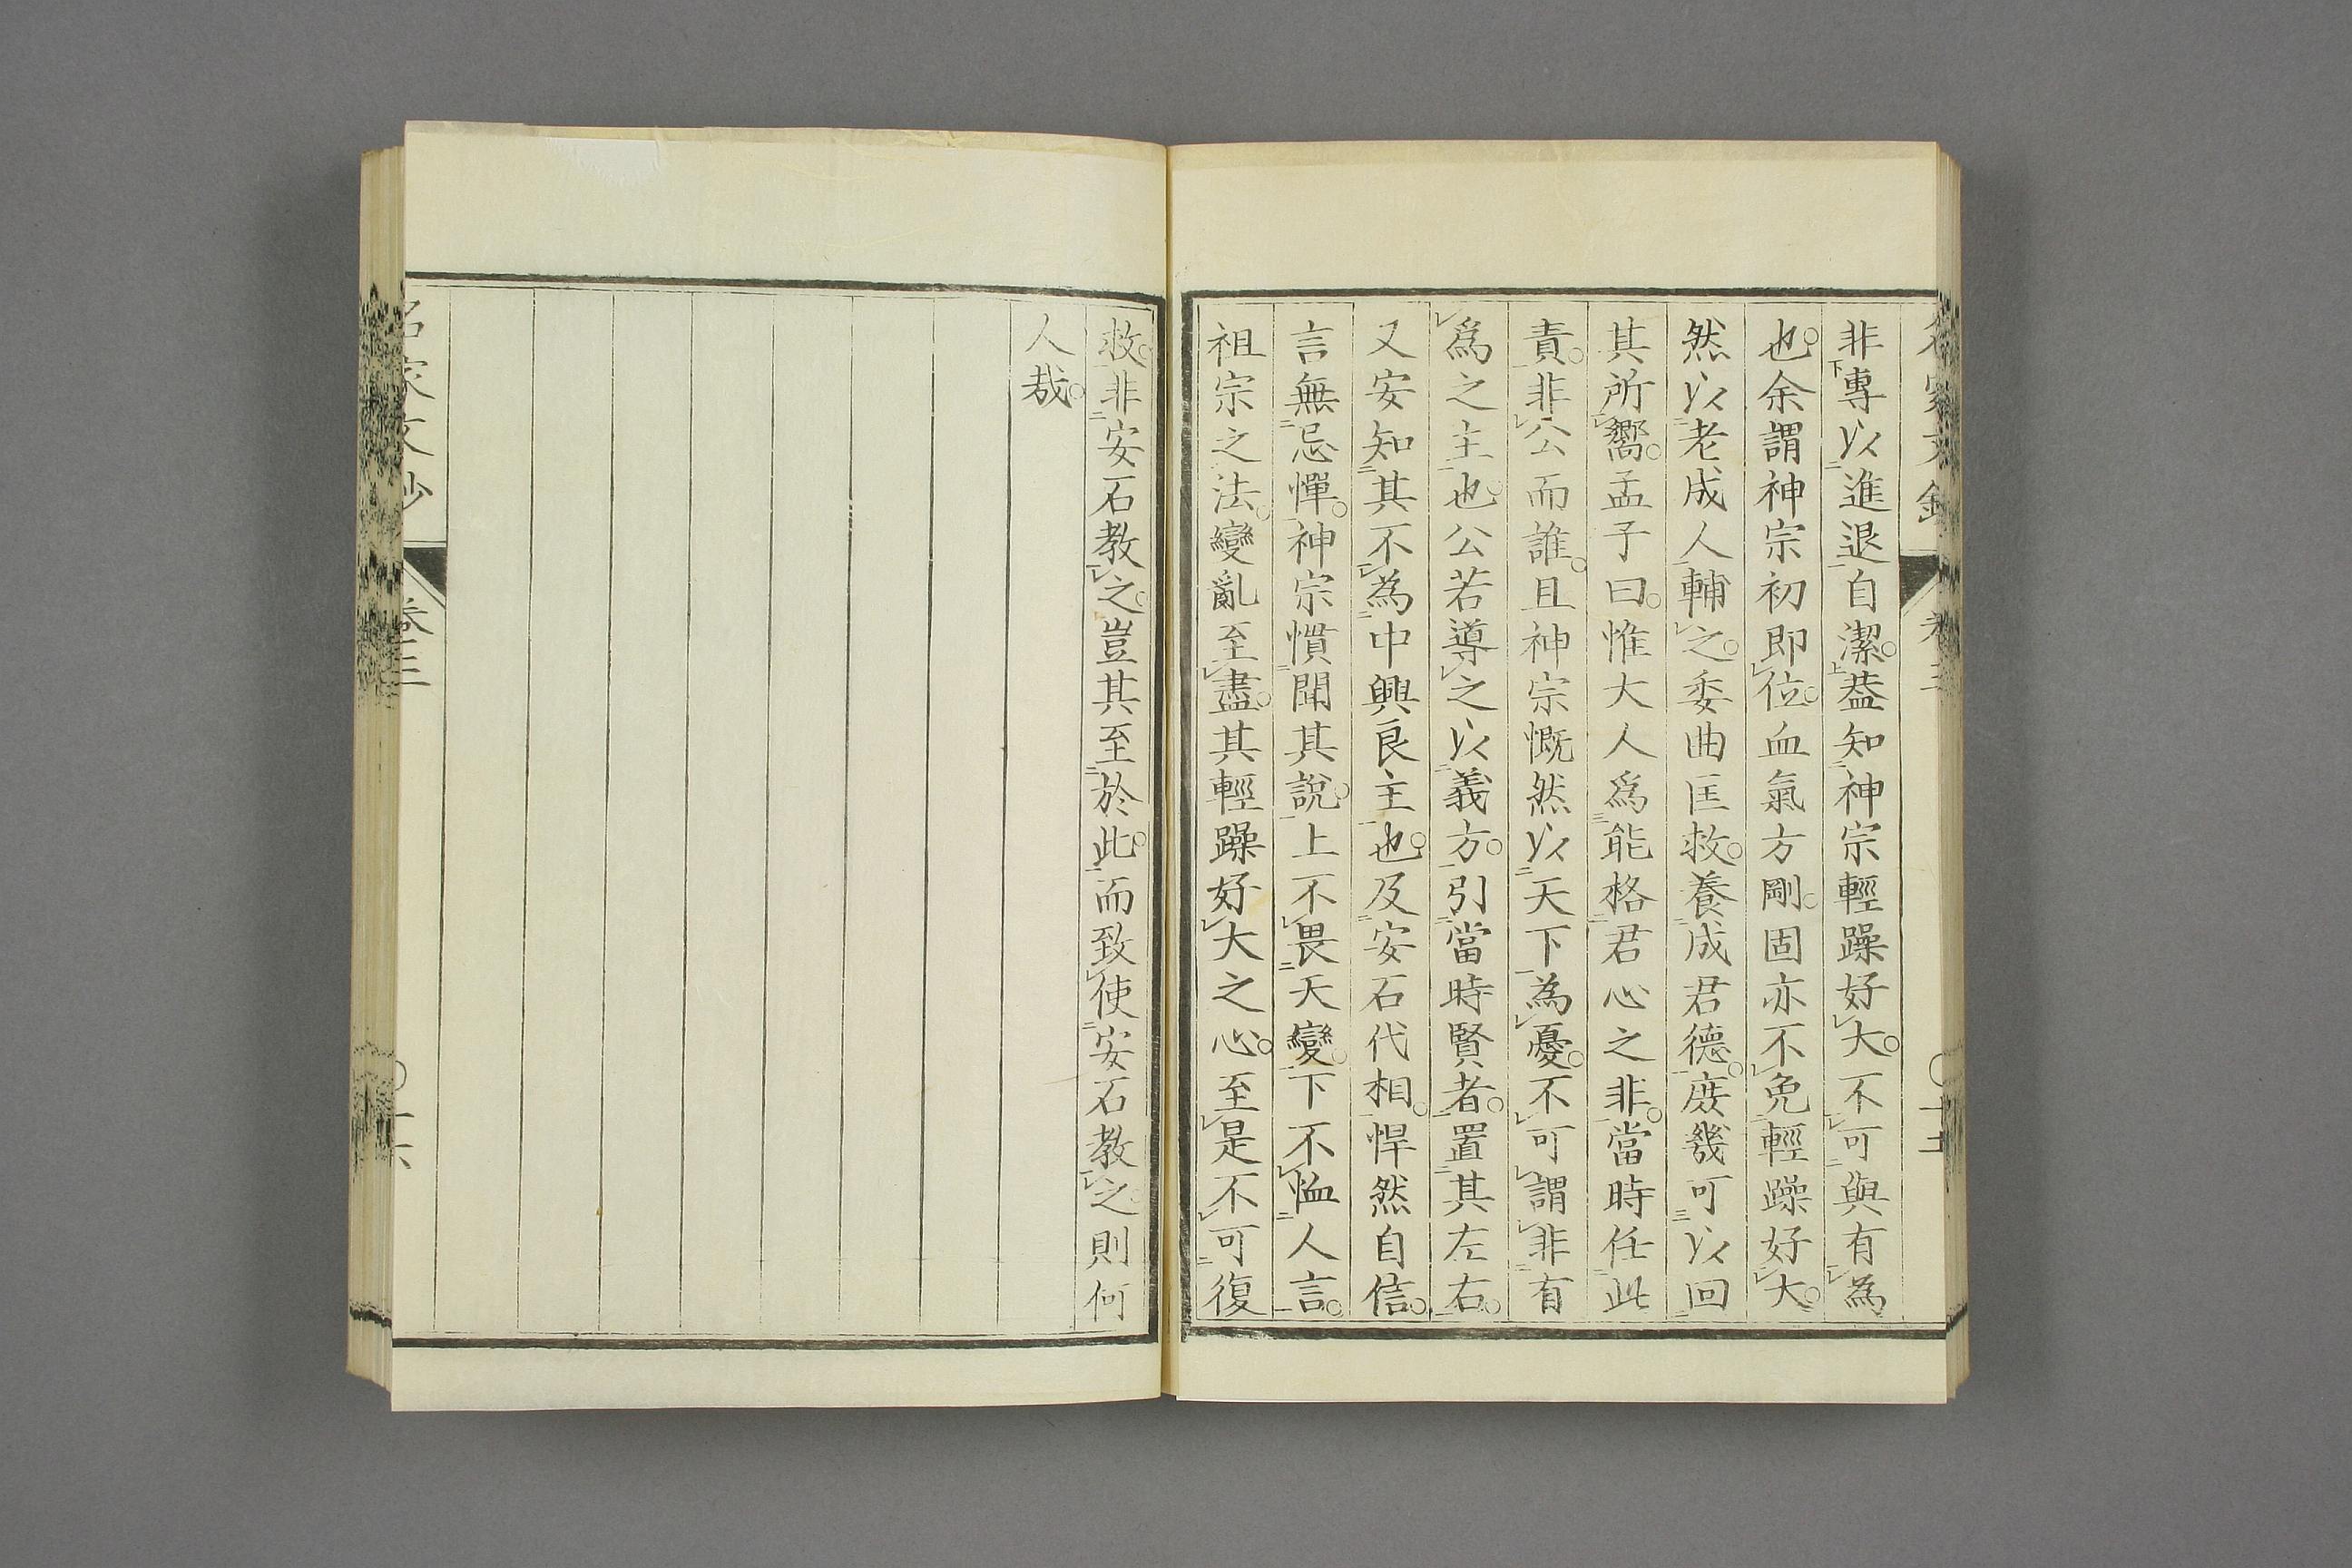 非專以進退自潔。葢知神宗輕躁好大。不可與有為
也。余謂神宗初即位。血氣方剛。固亦不免輕躁好大。
然以老成人輔之。委曲匡救。養成君德。庻幾可以回
其所嚮。孟子曰。惟大人爲能格君心之非。當時任此
責。非公而誰。且神宗慨然以天下為憂。不可謂非有
爲之主也。公若導之以義方。引當時賢者。置其左右。
又安知其不為中興良主也。及安石代相。悍然自信。
言無忌憚。神宗慣聞其說。上不畏天變。下不恤人言。
祖宗之法。變亂至盡。其輕躁好大之心。至是不可復
救。非安石教之。豈其至於此。而致使安石教之。則何
人哉。
名家文抄 卷三 十六